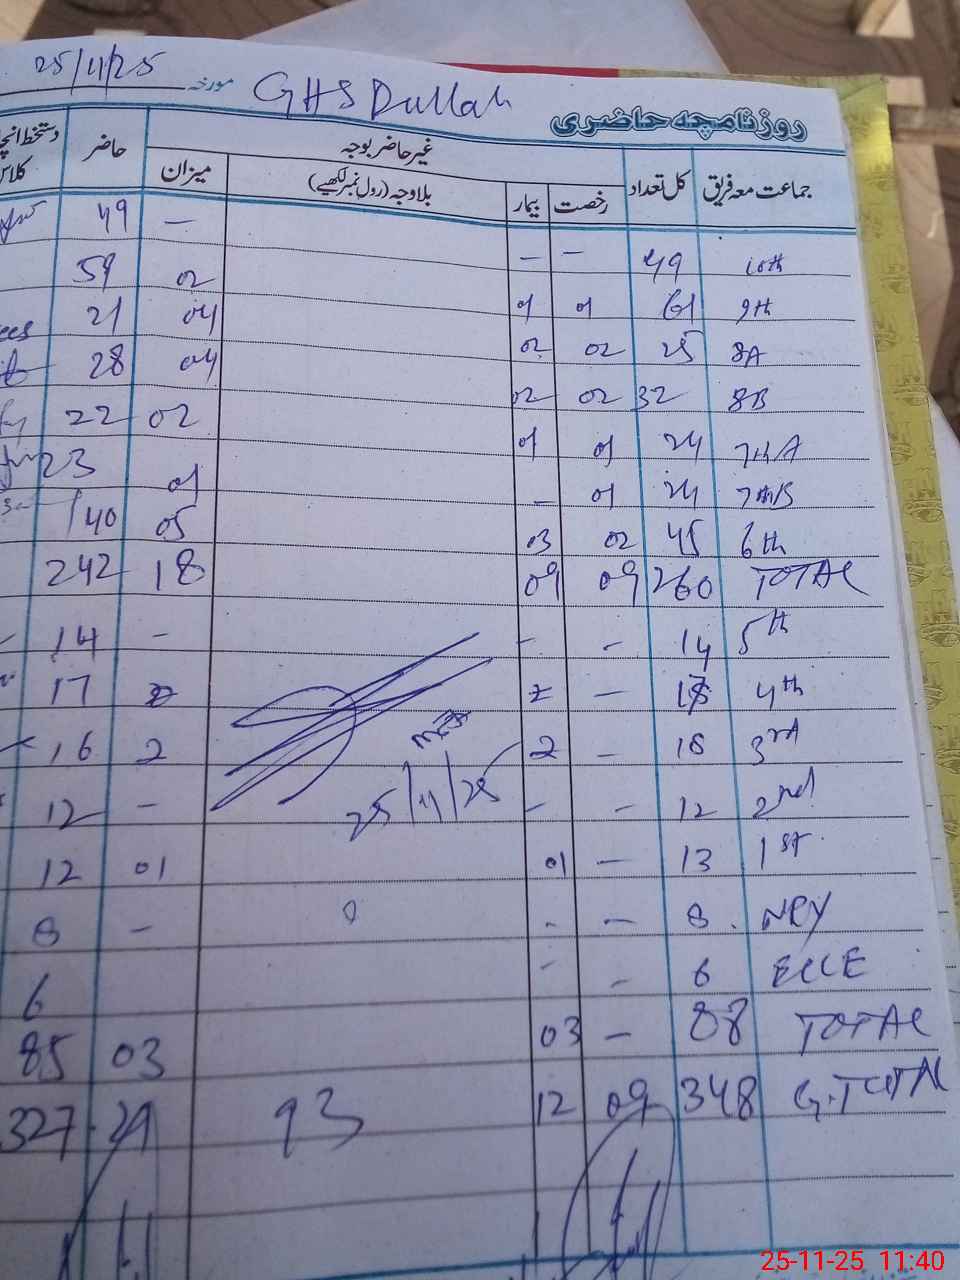 25/11/25 مورخہ GHS Dullah
روزنامچہ حاضری
جماعت معہ فریق کل تعداد غیر حاضر بوجہ حاضر دستخط انچا
رخصت بیمار بلاوجہ (رول نمبر لکھیے) میزان کلاس
10th 49 — — — 49
9th 61 01 01 02 59
8A 25 02 02 04 21
8B 32 02 02 04 28
7thA 24 01 01 02 22
7thB 24 01 — 01 23
6th 45 02 03 05 40
TOTAL 260 09 09 18 242
5th 14 — — — 14
4th — 17
3rd 18 — 2 2 16
25/11/25
2nd 12 — — — 12
1st 13 — 01 01 12
NRY 8 — - — 8
ECCE 6 — - 6
TOTAL 88 — 03 03 85
G.TOTAL 348 09 12 93 21 327
25-11-25 11:40